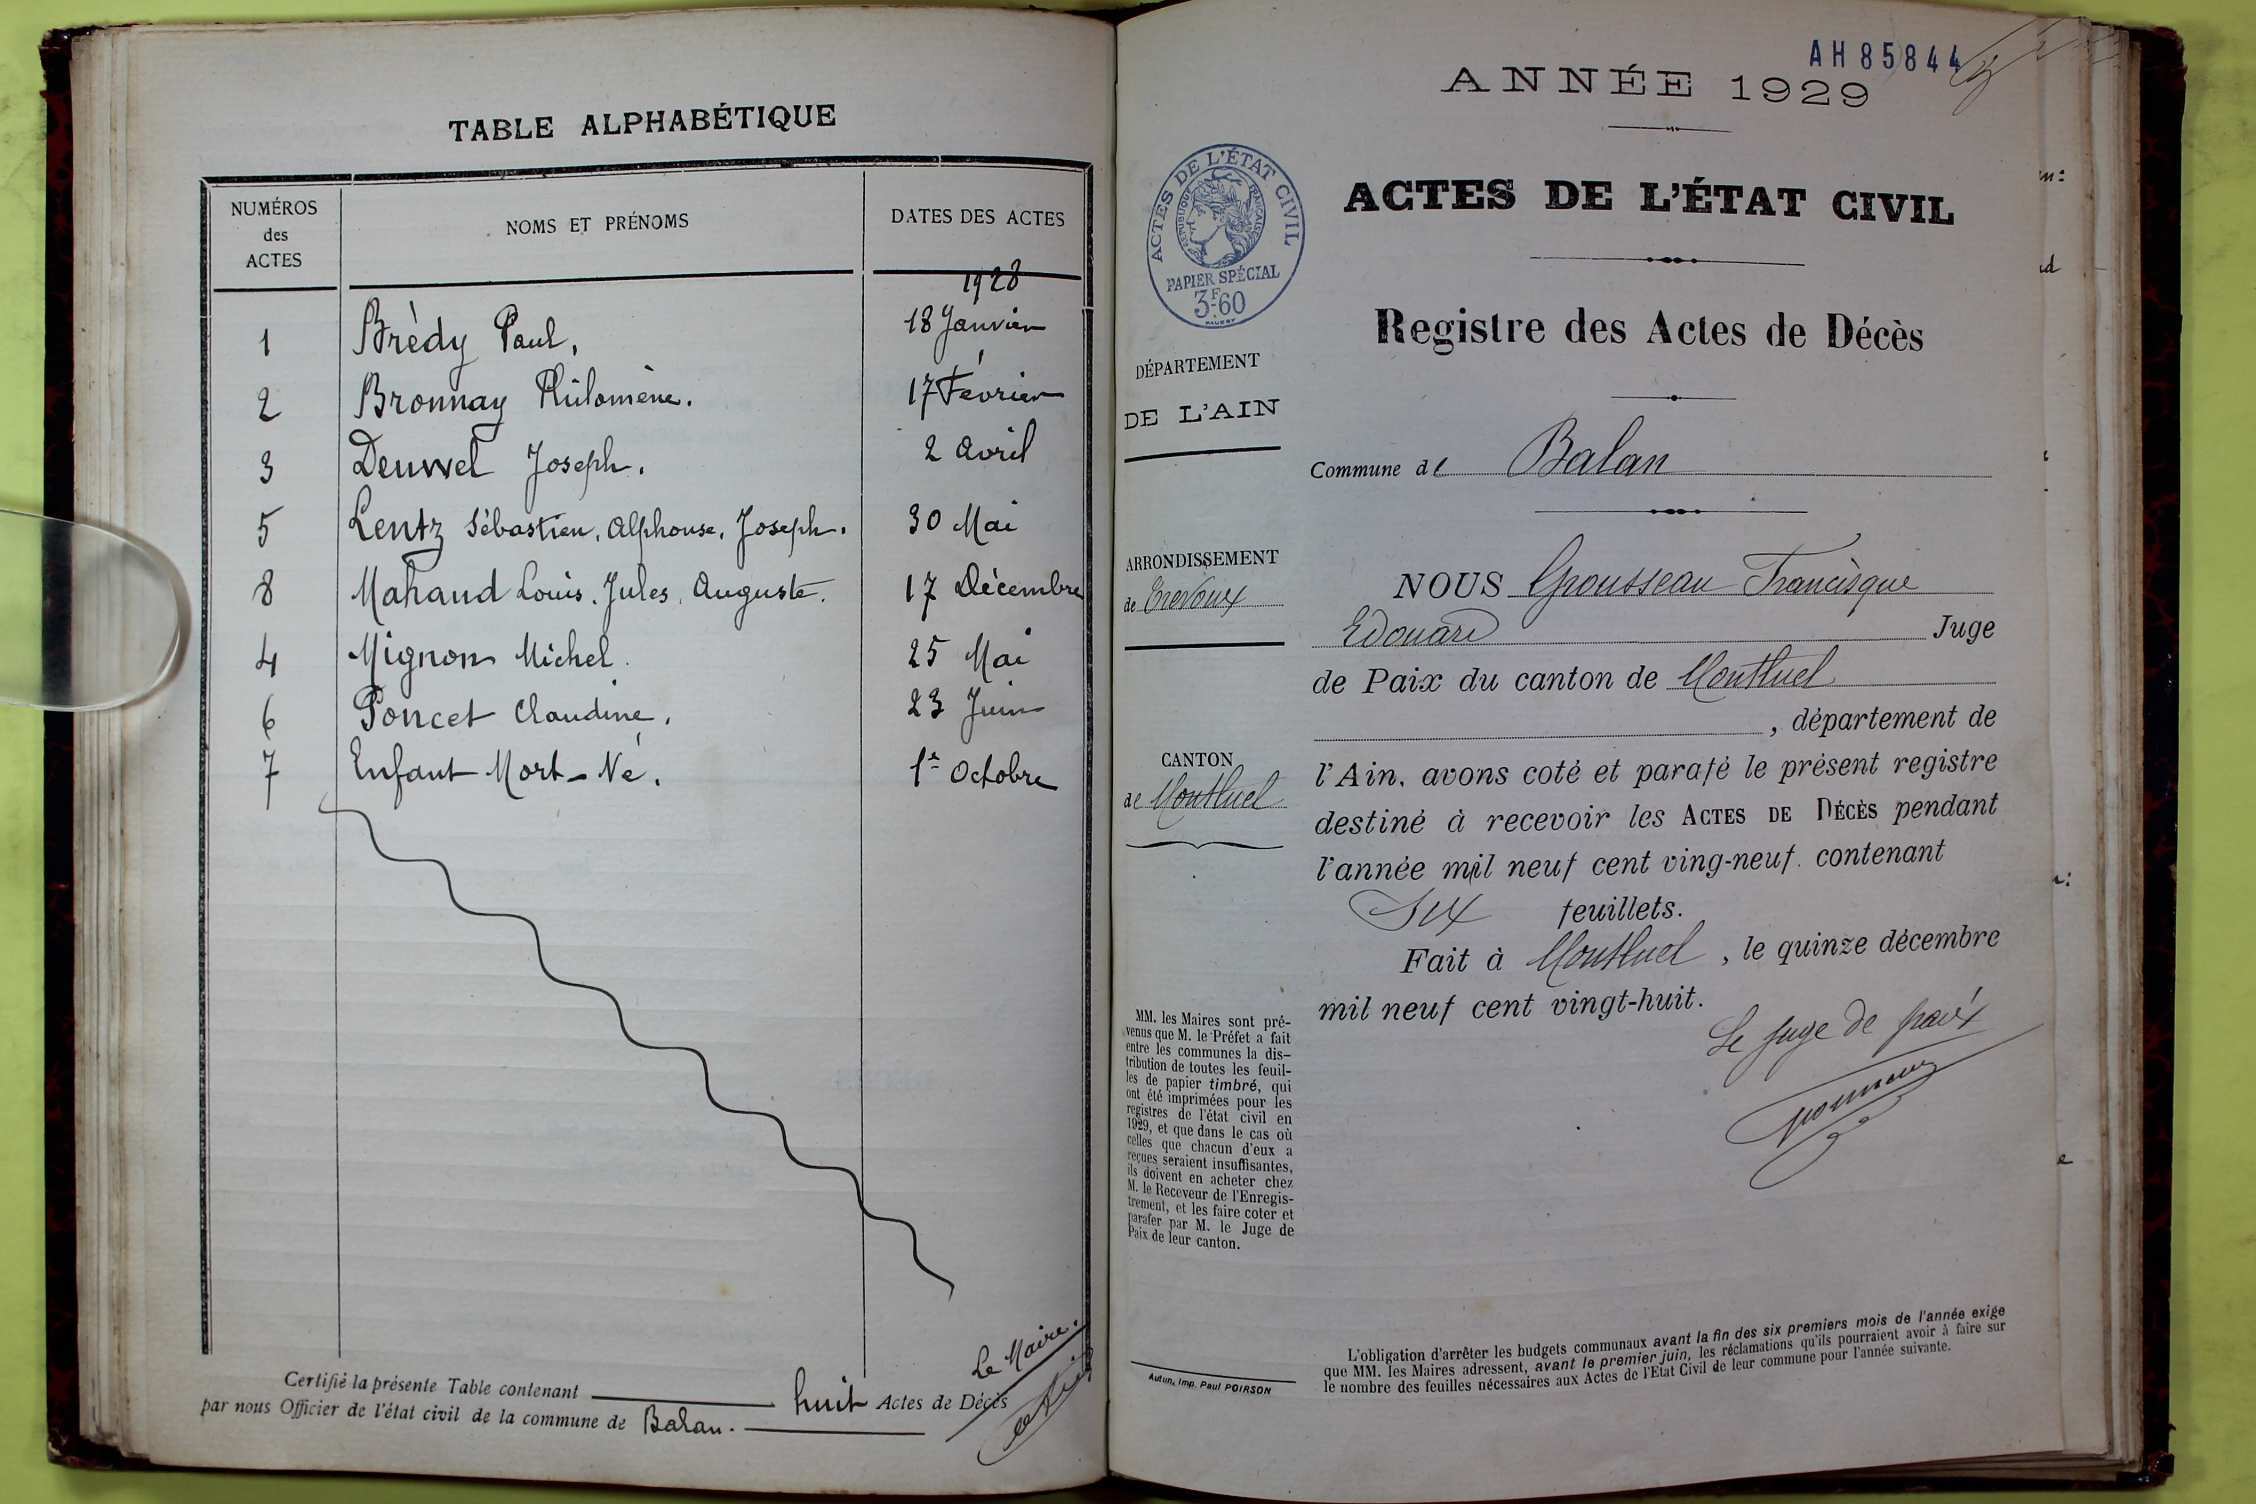 TABLE ALPHABÉTIQUE
NUMÉROS
des
ACTES
NOMS ET PRÉNOMS
DATES DES ACTES
1928
1 Brèdy Paul, 18 Janvier
2 Bronnay Philomène. 17 Février
3 Deuwel Joseph. 2 Avril
5 Lentz Sébastien, Alphonse, Joseph. 30 Mai
8 Mahaud Louis, Jules, Auguste. 17 Décembre
4 Mignon Michel. 25 Mai
6 Poncet Claudine. 23 Juin
7 Enfant Mort-Né. 1er Octobre
Certifié la présente Table contenant huit Actes de Décès
par nous Officier de l'état civil de la commune de Balan.
Le Maire.
AH 85844
ANNÉE 1929
ACTES DE L'ÉTAT CIVIL
RÉPUBLIQUE FRANÇAISE
PAPIER SPÉCIAL
3F.60
ACTES DE L'ÉTAT CIVIL
Registre des Actes de Décès
DÉPARTEMENT
DE L'AIN
Commune de Balan
ARRONDISSEMENT
de Trévoux
CANTON
de Montluel
NOUS Grousseau Francisque
Edouard Juge
de Paix du canton de Montluel
, département de
l'Ain, avons coté et parafé le présent registre
destiné à recevoir les ACTES DE DÉCÈS pendant
l'année mil neuf cent ving-neuf. contenant
Six feuillets.
Fait à Montluel, le quinze décembre
mil neuf cent vingt-huit.
Le Juge de paix
MM. les Maires sont pré-
venus que M. le Préfet a fait
entre les communes la dis-
tribution de toutes les feuil-
les de papier timbré, qui
ont été imprimées pour les
registres de l'état civil en
1929, et que dans le cas où
celles que chacun d'eux a
reçues seraient insuffisantes,
ils doivent en acheter chez
M. le Receveur de l'Enregis-
trement, et les faire coter et
parafer par M. le Juge de
Paix de leur canton.
Autun, Imp. Paul POIRSON
L'obligation d'arrêter les budgets communaux avant la fin des six premiers mois de l'année exige
que MM. les Maires adressent, avant le premier juin, les réclamations qu'ils pourraient avoir à faire sur
le nombre des feuilles nécessaires aux Actes de l'Etat Civil de leur commune pour l'année suivante.